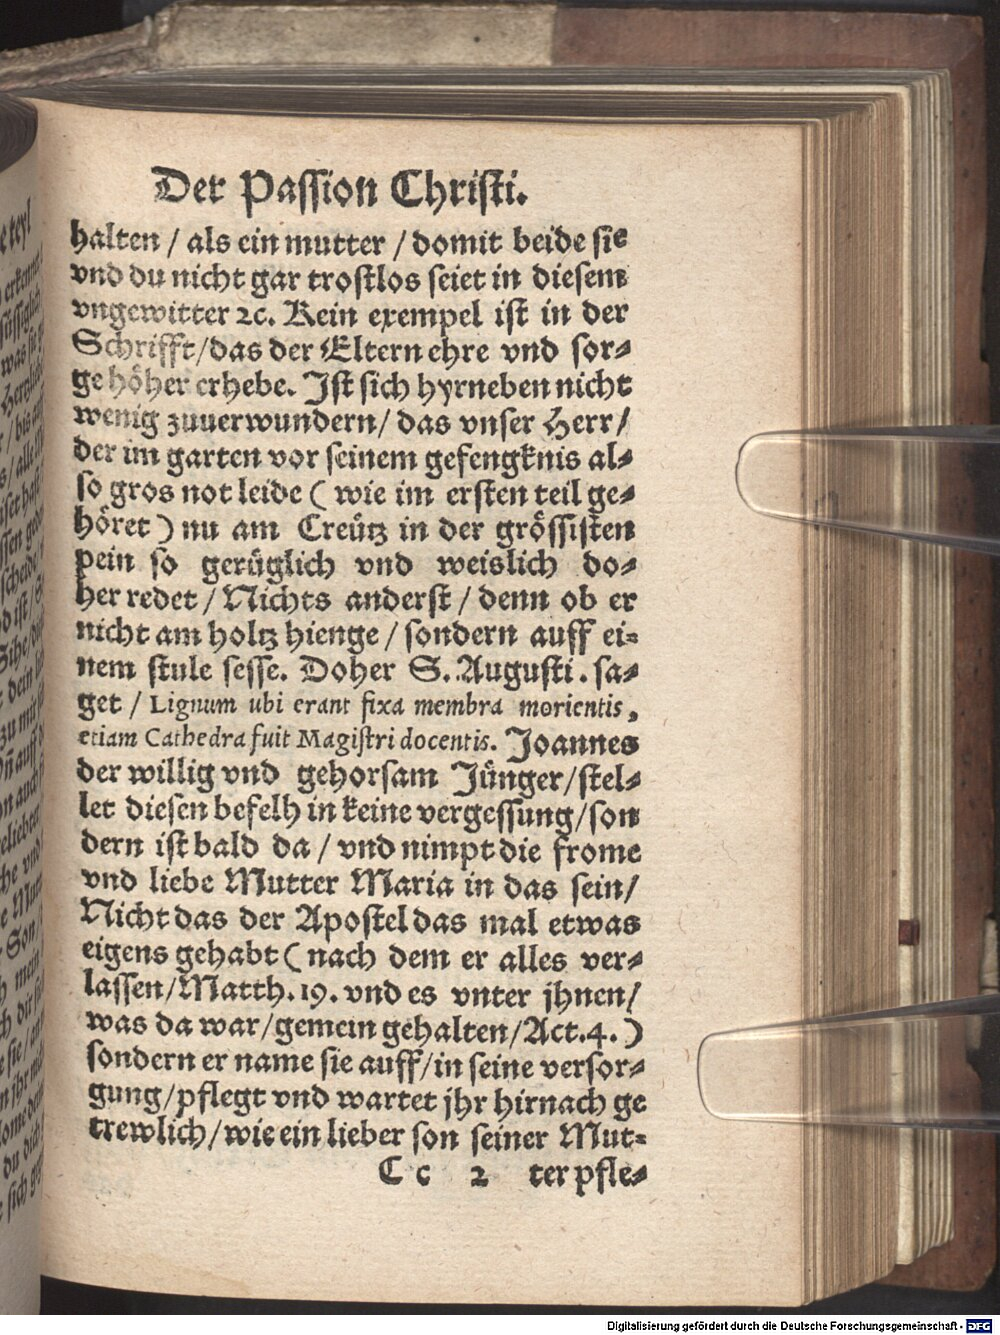 Der Passion Christi.
halten / als ein mutter / domit beide sie
vnd du nicht gar trostlos seiet in diesem
vngewitter ⁊c. Kein exempel ist in der
Schrifft/das der Eltern ehre vnd sor⸗
ge höher erhebe. Ist sich hyrneben nicht
wenig zuuerwundern/ das vnser Herr/
der im garten vor seinem gefengknis al⸗
so gros not leide ( wie im ersten teil ge⸗
höret ) nu am Creütz in der grössisten
pein so gerüglich vnd weislich do⸗
her redet / Nichts anderst / denn ob er
nicht am holtz hienge / sondern auff ei⸗
nem stule sesse. Doher S. Augusti. sa⸗
get / Lignum ubi erant fixa membra morientis,
etiam Cathedra fuit Magistri docentis. Joannes
der willig vnd gehorsam Jünger/stel⸗
let diesen befelh in keine vergessung/son
dern ist bald da / vnd nimpt die frome
vnd liebe Mutter Maria in das sein/
Nicht das der Apostel das mal etwas
eigens gehabt ( nach dem er alles ver⸗
lassen/Matth. 19. vnd es vnter jhnen/
was da war/gemein gehalten/Act.4. )
sondern er name sie auff/in seine versor⸗
gung/pflegt vnd wartet jhr hirnach ge
trewlich/wie ein lieber son seiner Mut⸗
C c 2 ter pfle⸗
Digitalisierung gefördert durch die Deutsche Forschungsgemeinschaft - DFG